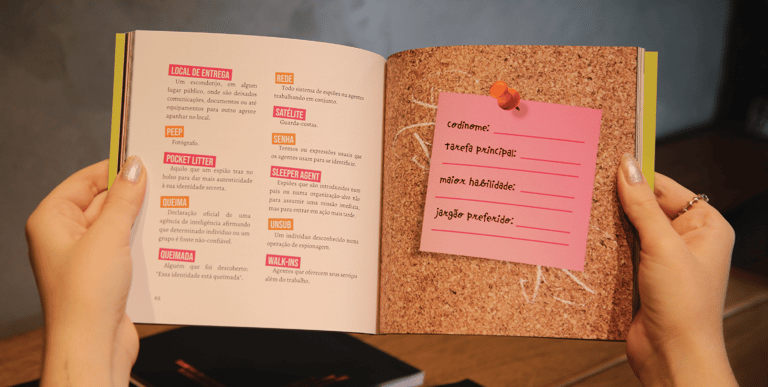 LOCAL DE ENTREGA
Um esconderijo, em algum
lugar público, onde são deixados
comunicações, documentos ou até
equipamentos para outro agente
apanhar no local.
PEEP
Fotógrafo.
POCKET LITTER
Aquilo que um espião traz no
bolso para dar mais autenticidade
à sua identidade secreta.
QUEIMA
Declaração oficial de uma
agência de inteligência afirmando
que determinado indivíduo ou um
grupo é fonte não-confiável.
QUEIMADA
Alguém que foi descoberto:
"Essa identidade está queimada".
REDE
Todo sistema de espiões ou agentes
trabalhando em conjunto.
SATÉLITE
Guarda-costas.
SENHA
Termos ou expressões usuais que
os agentes usam para se identificar.
SLEEPER AGENT
Espiões que são introduzidos num
país ou numa organização não
para assumir uma missão imediata,
mas para entrar em ação mais tarde.
UNSUB
Um indivíduo desconhecido numa
operação de espionagem.
WALK-INS
Agentes que oferecem seus serviços
além do trabalho.
codinome:
tarefa principal:
maior habilidade:
jargão preferido: